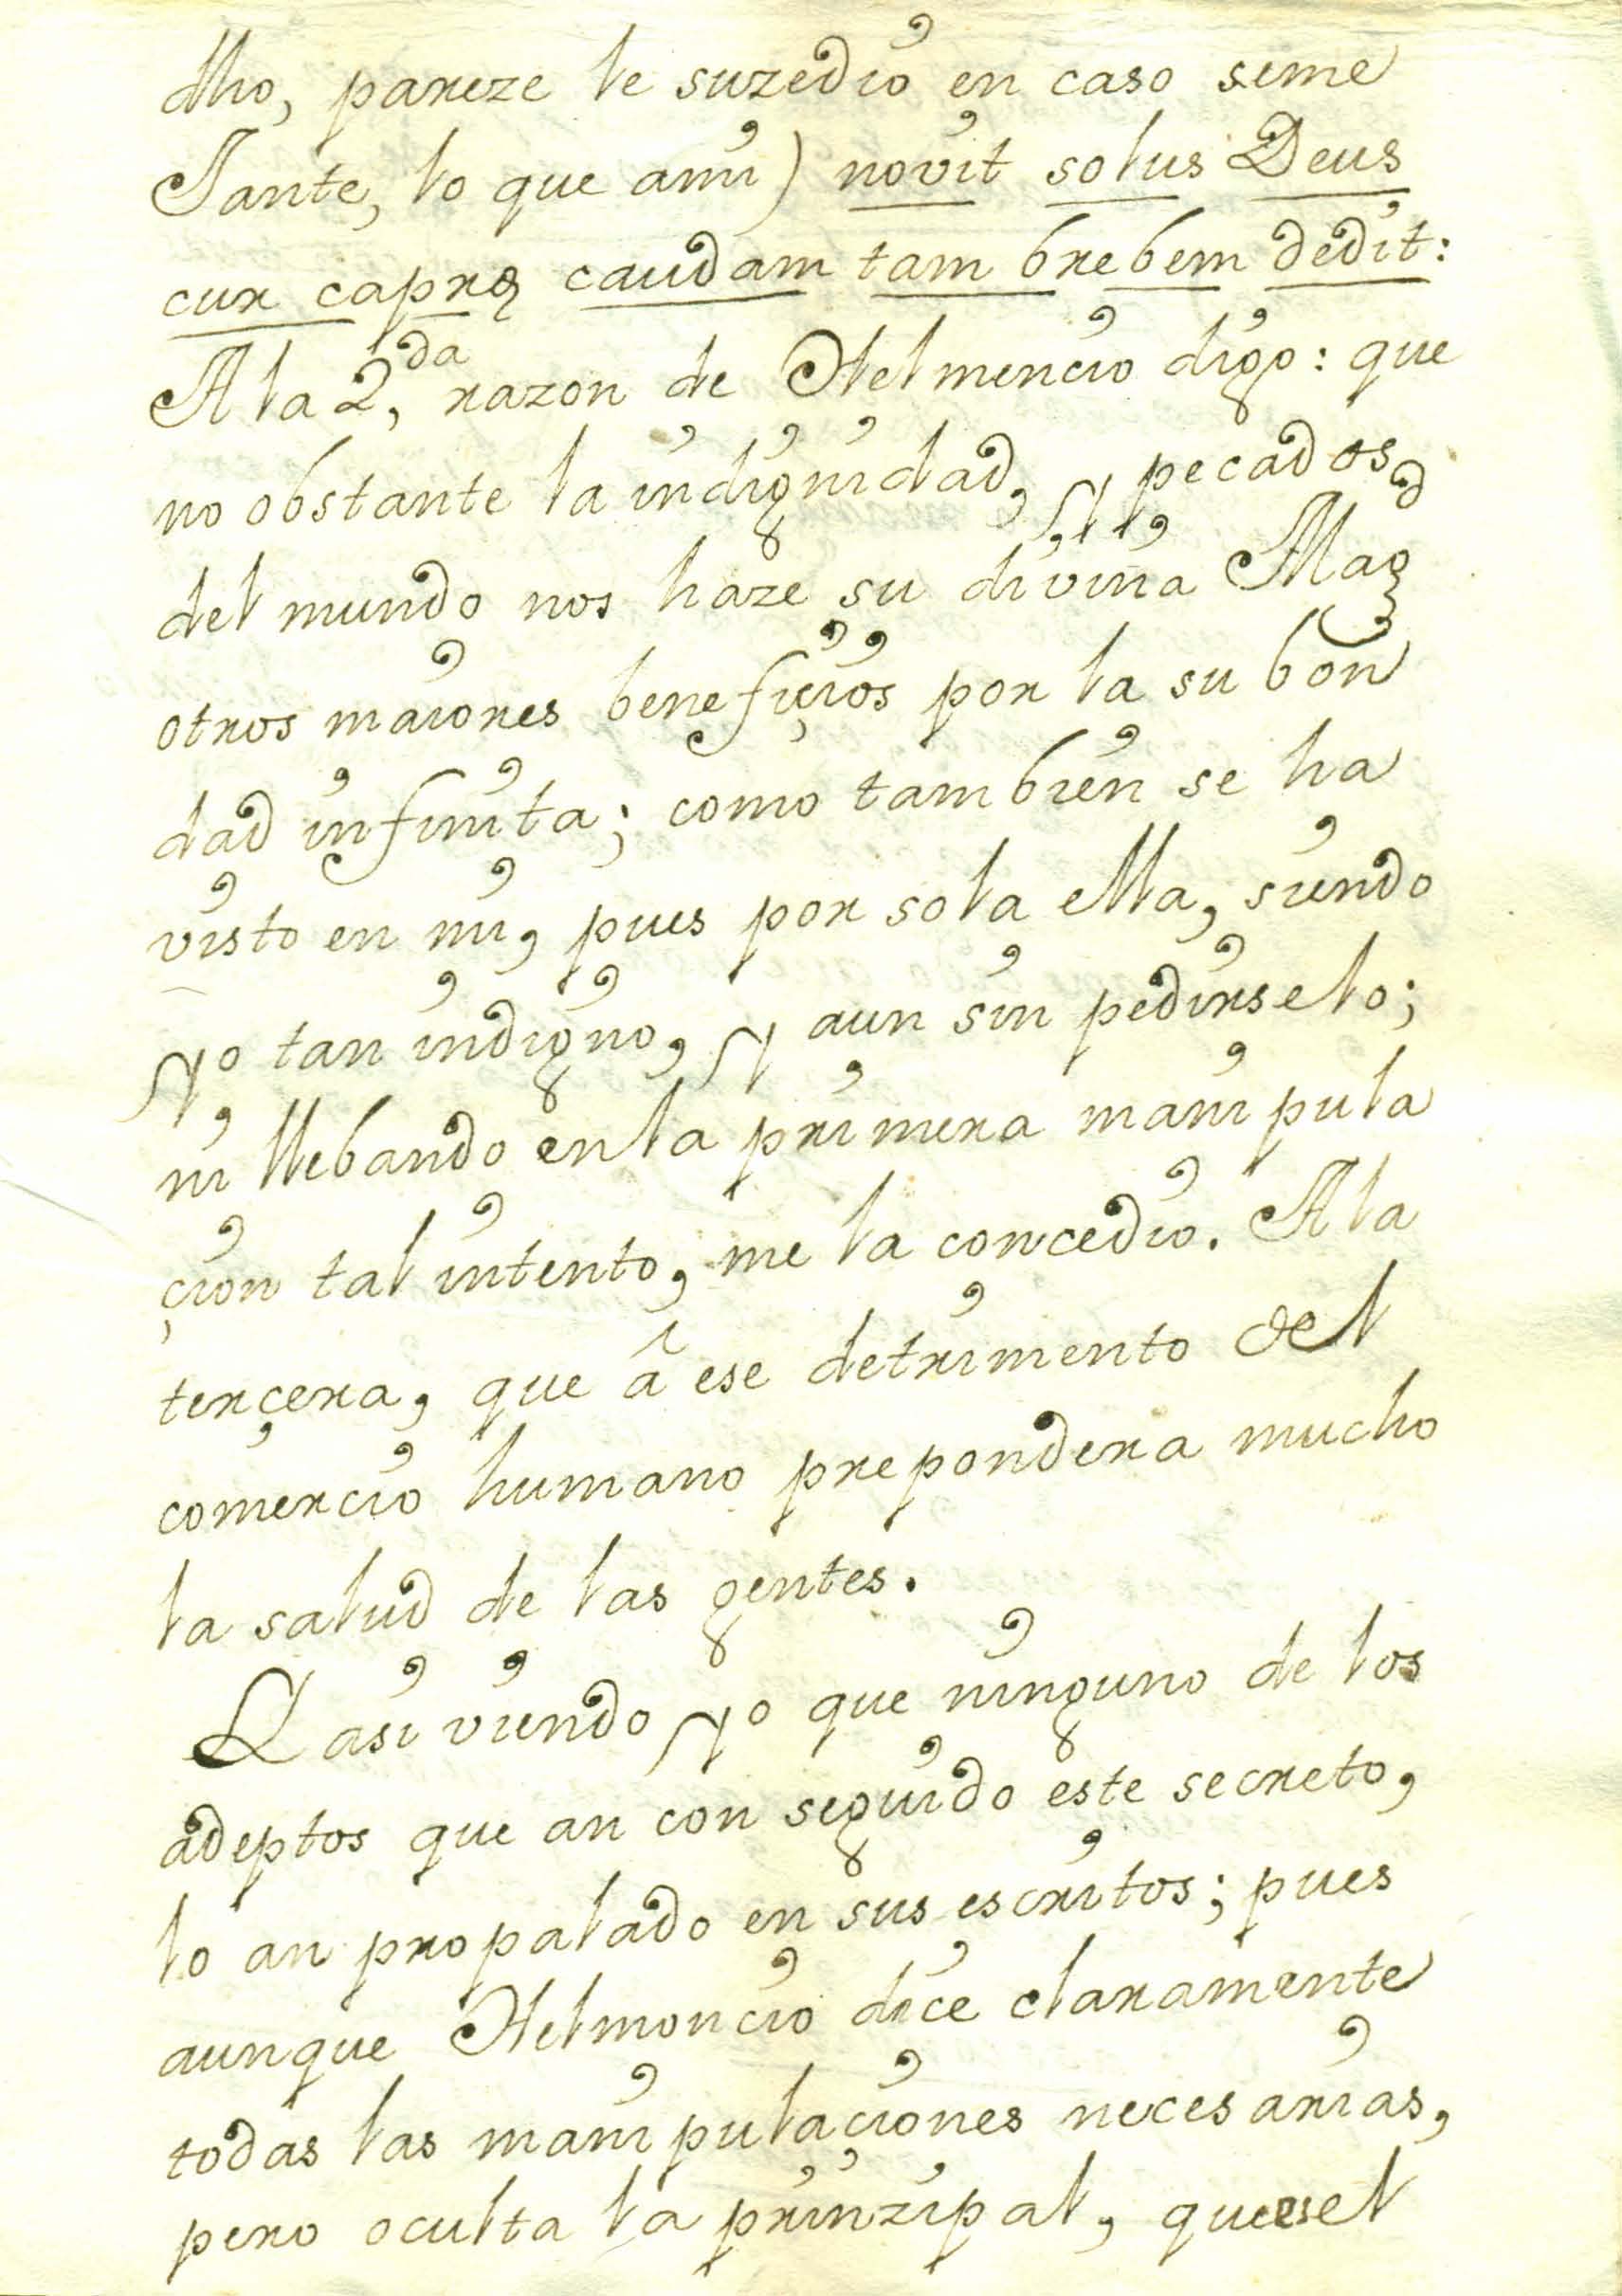 dho, pareze le suzedio en caso seme
Jante, lo que ami) novit solus Deus
cur caprę caudam tam brebem dedit:
A la 2,da razon de Helmencio digo: que
no obstante la indignidad, y pecados
del mundo nos haze su divina Mag
otros maiores benefiçios por la su bon
dad infinita; como tambien se ha
visto en mi, pues por sola ella, siendo
Yo tan indigno, y aun sin pedirselo;
ni llebando en la primera manipula
çion tal intento, me la concedio. A la
terçera, que â ese detrimento del
comercio humano prepondera mucho
la salud de las gentes.
Y asi viendo yo que ninguno de los
adeptos que an con seguido este secreto,
lo an propalado en sus escritos; pues
aunque Helmoncio dice claramente
todas las manipulaçiones necesarias,
pero oculta la prinzipal, que es el